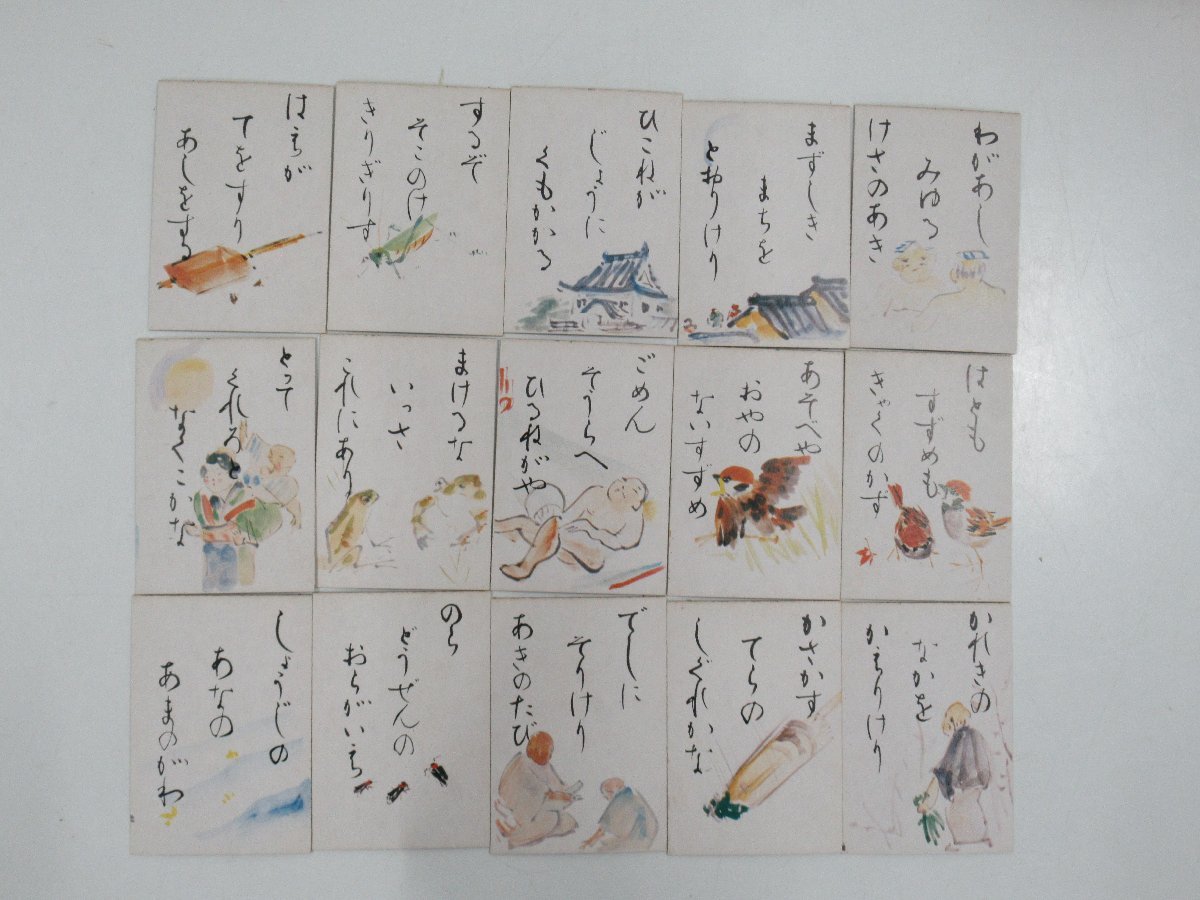 はえが
てをすり
あしをする
するぞ
そこのけ
きりぎりす
ひこねが
じょうに
くもかかる
まずしき
まちを
とおりけり
わがあし
みゆる
けさのあき
とって
くれろと
なくこかな
まけるな
いっさ
これにあり
ごめん
そうらへ
ひるねがや
あそべや
おやの
ないすずめ
はとも
すずめも
きゃくのかず
しょうじの
あなの
あまのがわ
のら
どうぜんの
おらがいえ
でしに
そりけり
あきのたび
かさかす
てらの
しぐれかな
かれきの
なかを
かえりけり